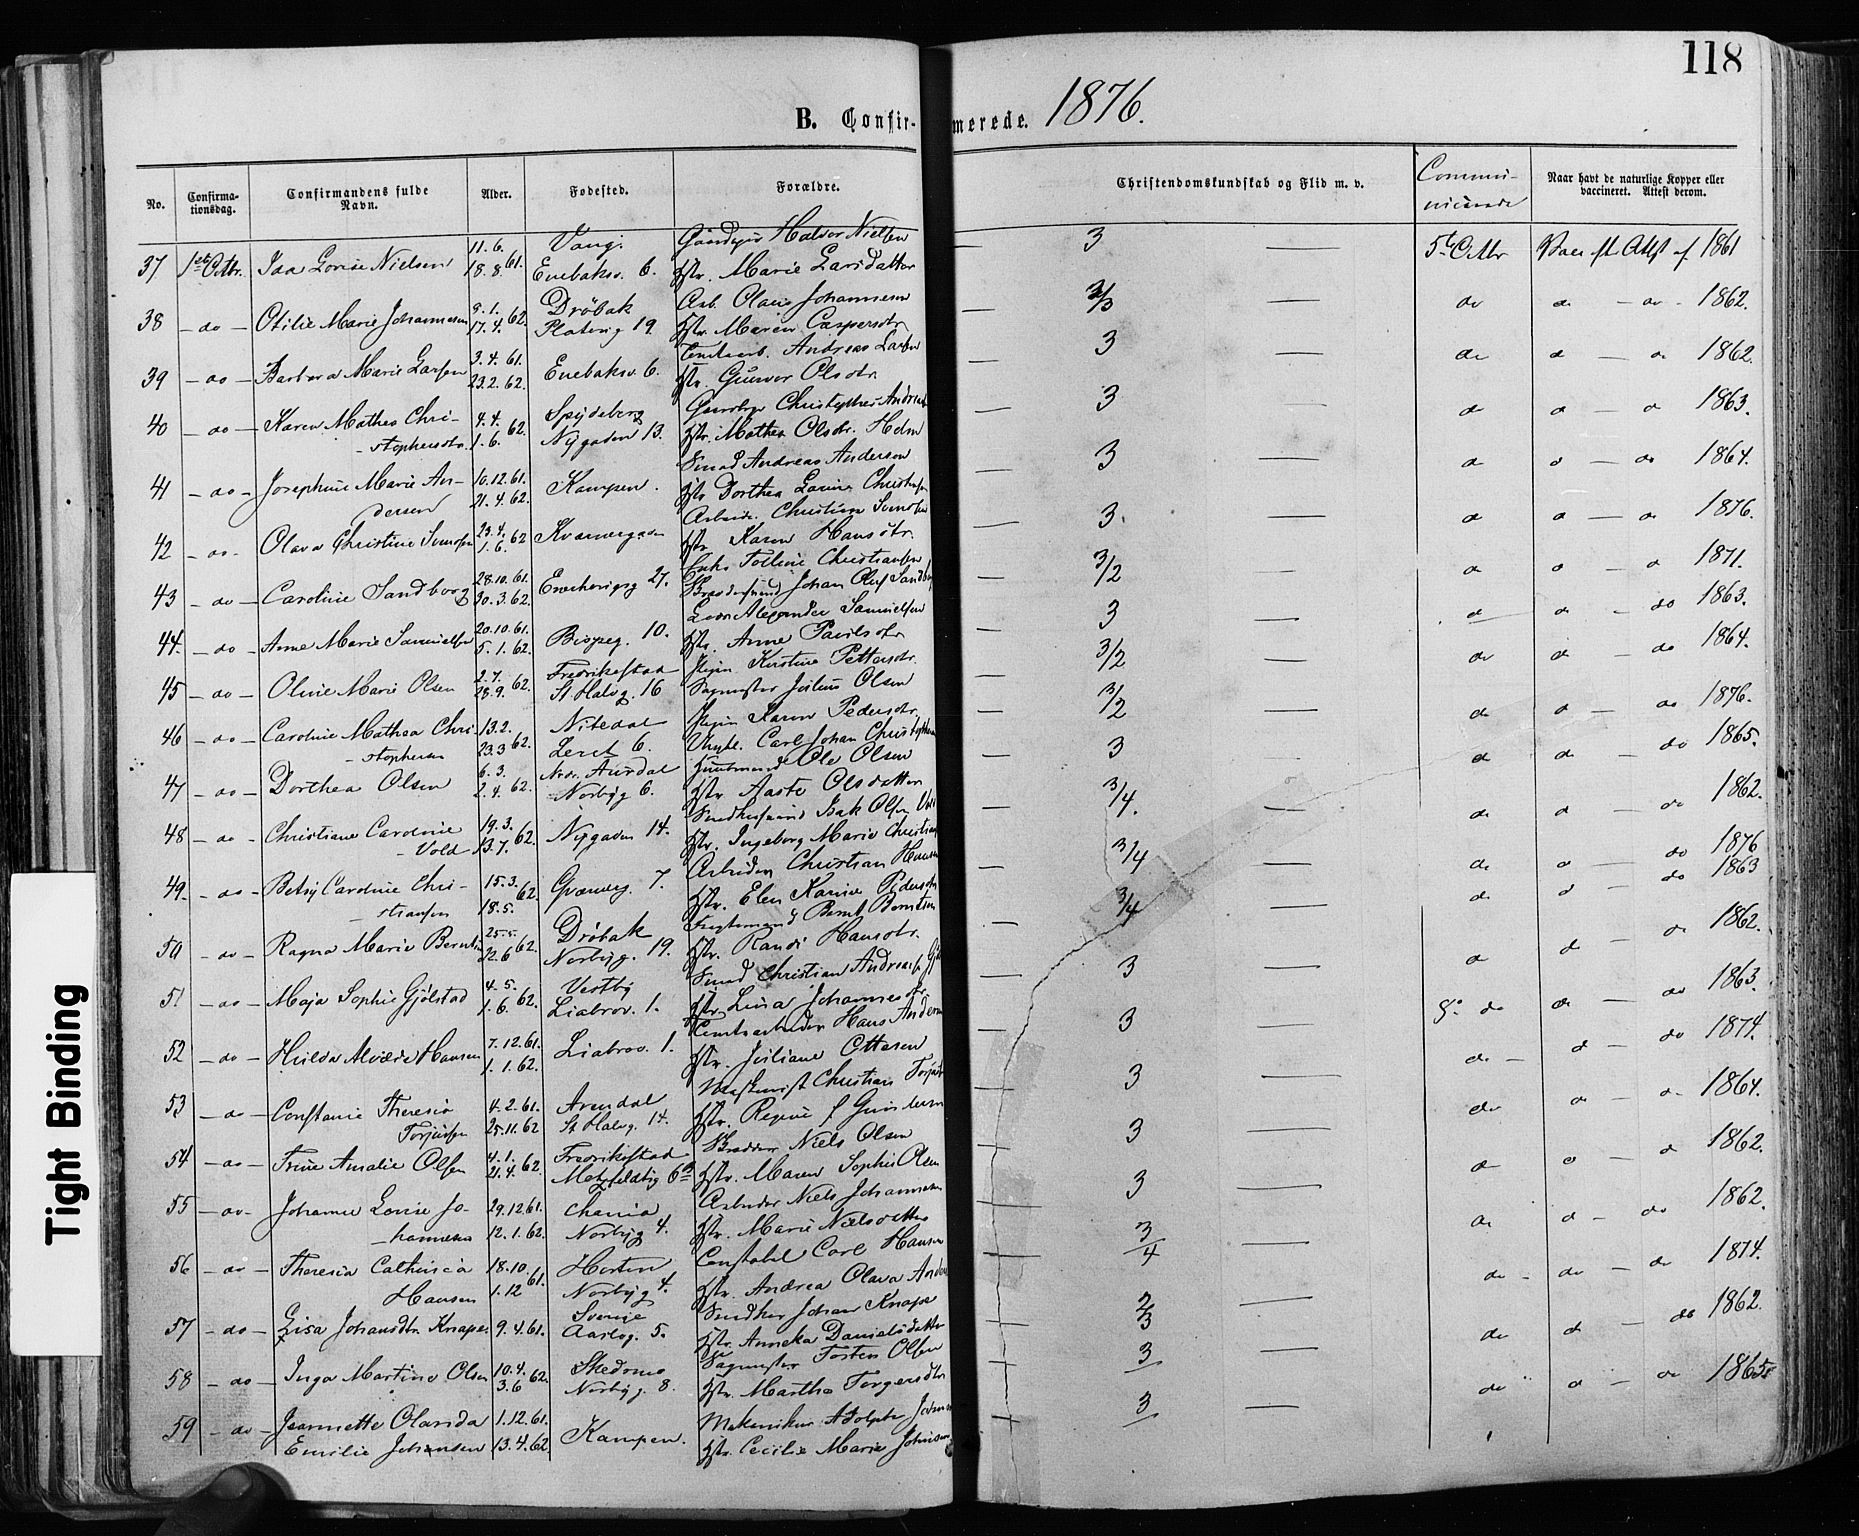 118
B. Confir- merede. 1876.
No. Confirma-tionsdag. Confirmandens fulde Navn. Alder. Fødested. Forældre. Christendomskundskab og Flid m. v. Communi-cerede Naar havt de naturlige Kopper eller vaccineret. Attest derom.
11. 6. Vang. Halvor Nielsen
37 1st Octbr. Ida Lovise Nielsen 18. 8. 61. Enebaksv. 6. Hstr. Marie Larsdatter 3 — 5t Octbr Vacc. ft. Attst af 1861
9. 1. Drøbak Arb. Olaus Johannesen
38 - do - Otilie Marie Johannesen 17. 4. 62. Platoug 19. Hstr. Maren Caspersdtr. 2/3 — do do - do - 1862.
3. 4. 61. Andreas Larsen
39 - do - Barbara Marie Larsen 23. 2. 62. Enebaksv. 6. Hstr. Gunvor Olsdtr. 3 — do do - do 1862.
Karen Mathea Chri- 4. 4. Spydeberg Christopher Andreas
40 - do - stophersdtr. 1. 6. 62. Nygaden 13. Hstr. Mathea Olsdtr. Holm 3 — do do - do 1863.
Smed Andreas Andersen
41 - do - Josephine Marie An- 10. 12. 61. Kampen. Hstr Dorthea Lovise
dersen 21. 4. 62. Arbeider Christian 3 — do do - do 1864.
42 - do - Olava Christine 23. 4. 62 Kværnergaden Hstr. Karen Hansdtr.
1. 6. 3. — do do - do 1876.
Enke Tolline Christiansen
43 - do - Caroline Sandborg 28. 10. 61. 30. 3. 62. 27. Johan Oluf 3/2 — do do - do 1871.
Alexander Samuelsen
44 - do - Anne Marie Samuelsen 20. 10. 61. 5. 1. 62. Bispeg. 10. Hstr. Anne Paulsdtr. 3 — do do - do 1863.
2. 7. Fredrikstad Pigen Kirstine Pettersdtr.
45 - do - Oline Marie Olsen 28. 9. 62. St. Halvg. 16 Sagmester Julius Olsen 3/2 — do do - do 1864.
13. 2. Nitedal Pigen Karen Pedersdtr.
46 - do - Caroline Mathea Chri- 23. 3 62. Leret 6. Carl Johan 3/2 — do do - do 1876.
stophersen
6. 3. Ndr. Aurdal Ole Olsen
47 - do - Dorthea Olsen 2. 4. 62. Norbyg 6. Hstr Aaste Olsdatter 3 — do do - do 1865.
Isak Olsen
48 - do - Christiane Caroline 19. 3. 62. Nygaden 14. Hstr. Ingeborg Marie 3/4. — do do - do 1862.
- Vold 13. 7.
Arbeider Christian Hansen
49. - do - Betsy Caroline Chri- 15. 3. 62 Qværnerg. 7. Hstr. Elen Karine Pedersdtr 3/4 — do do - do 1876
stiansen 18. 5. 1863
25. 5. Drøbak Bernt Berntsen
50 - do - Ragna Marie Berntsen 22. 6 62. Norbyg. 19. Hstr. Randi Hansdtr. 3/4 — do do - do 1862.
4. 5. Vestby Smed Christian Andreas
51 - do - Maja Sophie Gjølstad 1. 6. 62. Liabrov. 1. Hstr. Lina Johannesdtr. 3 — do do - do 1863.
Hans Andersen
52 - do - Hulda Alvilde Hansen 7. 12. 61. 1. 1. 62. Liabrov. 1. Hstr. Juliane Ottesen 3 — do - do - do 1874.
Maskinist Christian
53 - do - Constance Theresia 4. 2. 61. Arendal Hstr. Regine f. Gundersen 3 — do do - do 1864.
Torjusen 25. 11. 62 St. Halvg. 14.
4. 1. Fredrikstad Niels Olsen
54 - do - Trine Amalie Olsen 21. 4. 62. Meltzfeldtsg 6B Hstr. Maren Sophie Olsen 3 — do do - do 1862.
Arbeider Niels Johannesen
55 - do - Johanne Lovise Jo- 29. 12. 61. Chania Hstr. Marie Nielsdatter 3 — do do - do 1862.
hannesen 12. 1. 62. Norbyg 4.
Constabel Carl Hansen
56 - do - Theresia Cathincia 18. 10. 61. Horten Hstr. Andrea Olava 3/4 — do - do - do 1874.
Hansen 1. 12 Norbyg 4.
Sverige Johan Knape
57 - do - Lisa Johansdtr Knape 9. 4. 61. Aastvg. 5. Hstr. Annika Danielsdatter 2/3 — do do - do 1862.
10. 4. Skedsmo Sagmester Torsten Olsen
58 - do - Inga Martine Olsen 3. 6 62. Norbyg. 8. Hstr. Marthe Torgersdtr 3 — do do - do 1865.
59 - do - Jeannette Olarida 1. 12. 61. Kampen. Mekanikus Adolph 3 —
Emilie Johansen 13. 4. 62 Hstr. Cecilie Marie Johnsen
Tight Binding